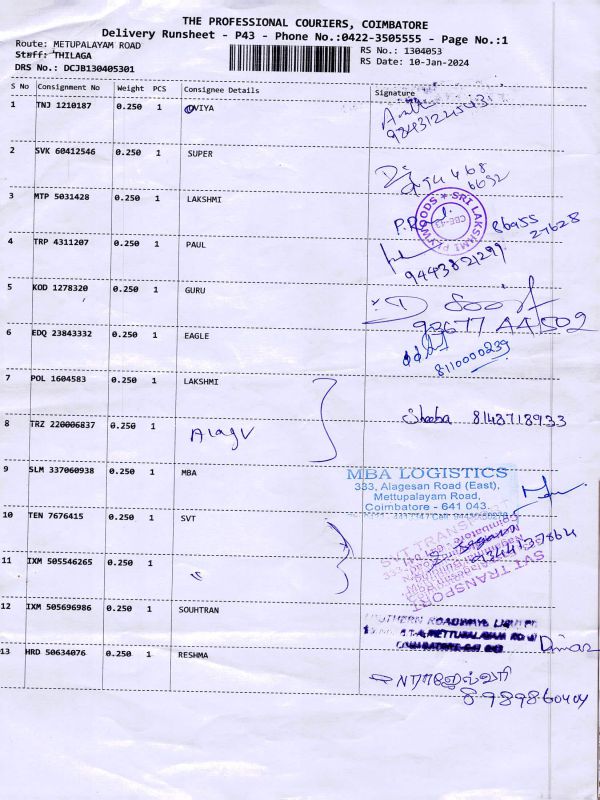 THE PROFESSIONAL COURIERS, COIMBATORE
Delivery Runsheet - P43 - Phone No.:0422-3505555 - Page No.:1
Route: METUPALAYAM ROAD
Staff: THILAGA
DRS No.: DCJB130405301
RS No.: 1304053
RS Date: 10-Jan-2024
S No Consignment No Weight PCS Consignee Details Signature
1 TNJ 1210187 0.250 1 OVIYA
2 SVK 60412546 0.250 1 SUPER
3 MTP 5031428 0.250 1 LAKSHMI
SRI LAKSHMI PLYWOODS
CBE-43
86955
27628
4 TRP 4311207 0.250 1 PAUL
9443821299
5 KOD 1278320 0.250 1 GURU
6 EDQ 23843332 0.250 1 EAGLE
8110000239
7 POL 1604583 0.250 1 LAKSHMI
Sheeba 8148718933
8 TRZ 220006837 0.250 1
9 SLM 337060938 0.250 1 MBA
MBA LOGISTICS
333, Alagesan Road (East),
Mettupalayam Road,
Coimbatore - 641 043.
10 TEN 7676415 0.250 1 SVT
SVT TRANSPORT
11 IXM 505546265 0.250 1 "
12 IXM 505696986 0.250 1 SOUHTRAN
13 HRD 50634076 0.250 1 RESHMA
8989860404